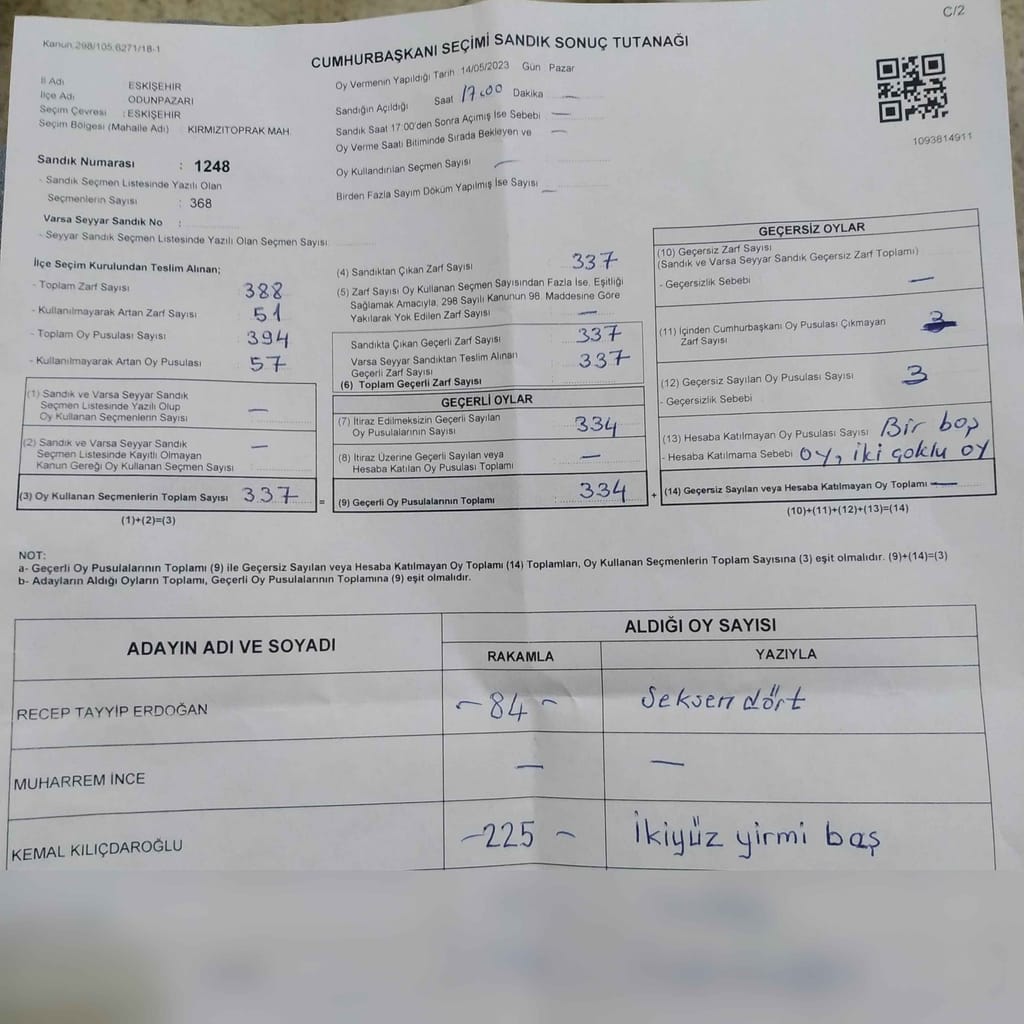 C/2
Kanun 298/105,6271/18-1
CUMHURBAŞKANI SEÇİMİ SANDIK SONUÇ TUTANAĞI
İl Adı : ESKİŞEHİR
İlçe Adı : ODUNPAZARI
Seçim Çevresi : ESKİŞEHİR
Seçim Bölgesi (Mahalle Adı) : KIRMIZITOPRAK MAH.
Oy Vermenin Yapıldığı Tarih 14/05/2023 Gün Pazar
Sandığın Açıldığı Saat 17.00 Dakika —
Sandık Saat 17:00'den Sonra Açımış Ise Sebebi —
Oy Verme Saati Bitiminde Sırada Bekleyen ve —
Oy Kullandırılan Seçmen Sayısı —
Birden Fazla Sayım Döküm Yapılmış İse Sayısı —
1093814911
Sandık Numarası : 1248
- Sandık Seçmen Listesinde Yazılı Olan
Seçmenlerin Sayısı : 368
Varsa Seyyar Sandık No :
- Seyyar Sandık Seçmen Listesinde Yazılı Olan Seçmen Sayısı
İlçe Seçim Kurulundan Teslim Alınan;
- Toplam Zarf Sayısı 388
- Kullanılmayarak Artan Zarf Sayısı 51
- Toplam Oy Pusulası Sayısı 394
- Kullanılmayarak Artan Oy Pusulası 57
(1) Sandık ve Varsa Seyyar Sandık
Seçmen Listesinde Yazılı Olup
Oy Kullanan Seçmenlerin Sayısı —
(2) Sandık ve Varsa Seyyar Sandık
Seçmen Listesinde Kayıtlı Olmayan
Kanun Gereği Oy Kullanan Seçmen Sayısı —
(3) Oy Kullanan Seçmenlerin Toplam Sayısı 337 =
(1)+(2)=(3)
(4) Sandıktan Çıkan Zarf Sayısı 337
(5) Zarf Sayısı Oy Kullanan Seçmen Sayısından Fazla İse, Eşitliği
Sağlamak Amacıyla, 298 Sayılı Kanunun 98. Maddesine Göre
Yakılarak Yok Edilen Zarf Sayısı —
Sandıkta Çıkan Geçerli Zarf Sayısı 337
Varsa Seyyar Sandıktan Teslim Alınan
Geçerli Zarf Sayısı 337
(6) Toplam Geçerli Zarf Sayısı
GEÇERLİ OYLAR
(7) İtiraz Edilmeksizin Geçerli Sayılan
Oy Pusulalarının Sayısı 334
(8) İtiraz Üzerine Geçerli Sayılan veya
Hesaba Katılan Oy Pusulası Toplamı —
(9) Geçerli Oy Pusulalarının Toplamı 334 +
GEÇERSİZ OYLAR
(10) Geçersiz Zarf Sayısı
(Sandık ve Varsa Seyyar Sandık Geçersiz Zarf Toplamı)
- Geçersizlik Sebebi —
(11) İçinden Cumhurbaşkanı Oy Pusulası Çıkmayan
Zarf Sayısı
(12) Geçersiz Sayılan Oy Pusulası Sayısı 3
- Geçersizlik Sebebi
(13) Hesaba Katılmayan Oy Pusulası Sayısı Bir boş
- Hesaba Katılmama Sebebi oy, iki çoklu oy
(14) Geçersiz Sayılan veya Hesaba Katılmayan Oy Toplamı —
(10)+(11)+(12)+(13)=(14)
NOT:
a- Geçerli Oy Pusulalarının Toplamı (9) ile Geçersiz Sayılan veya Hesaba Katılmayan Oy Toplamı (14) Toplamları, Oy Kullanan Seçmenlerin Toplam Sayısına (3) eşit olmalıdır. (9)+(14)=(3)
b- Adayların Aldığı Oyların Toplamı, Geçerli Oy Pusulalarının Toplamına (9) eşit olmalıdır.
ADAYIN ADI VE SOYADI
ALDIĞI OY SAYISI
RAKAMLA YAZIYLA
RECEP TAYYİP ERDOĞAN -84- Seksen dört
MUHARREM İNCE — —
KEMAL KILIÇDAROĞLU -225- İkiyüz yirmi baş